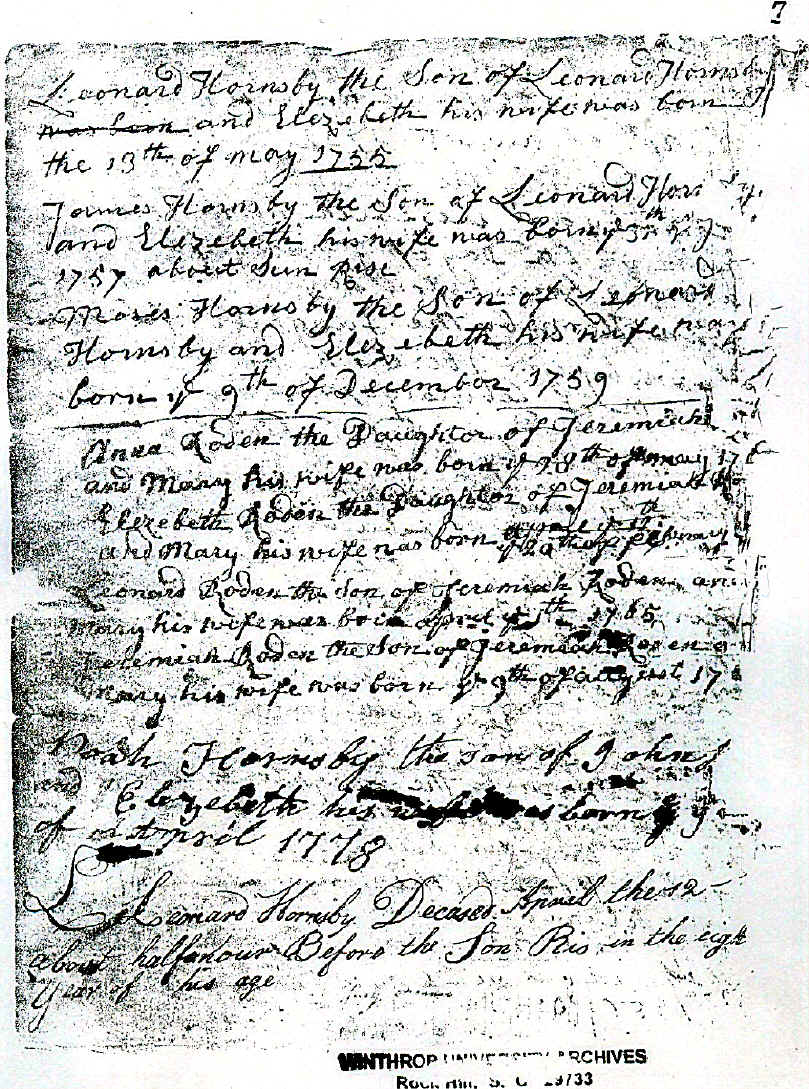 7
Leonard Hornsby the Son of Leonard Hornsby
was born and Elezebeth his wife was born
the 13th of may 1755
James Hornsby the Son of Leonard Hor
and Elezebeth his wife was born ye 3th
1757 about Sun Rise
Moses Hornsby the Son of Leonard
Hornsby and Elezebeth his wife was
born ye 9th of December 1759
Anna Roden the Daughter of Jeremiah
and Mary his wife was born ye 28th of may 17
Elezebeth Roden the Daughter of Jeremiah
and Mary his wife was born
Leonard Roden the Son of Jeremiah Roden an
Mary his wife was born April ye 5th 1765
Jeremiah Roden the Son of Jeremiah Roden
Mary his wife was born ye 9th of august 17
Noah Hornsby the son of John
and Elezebeth his wife was born
of April 1778
Leonard Hornsby Decased April the 12
about half an hour Before the Son Ris in the eigt
Year of his age
WINTHROP UNIVERSITY ARCHIVES
Rock Hill, S. C. 29733